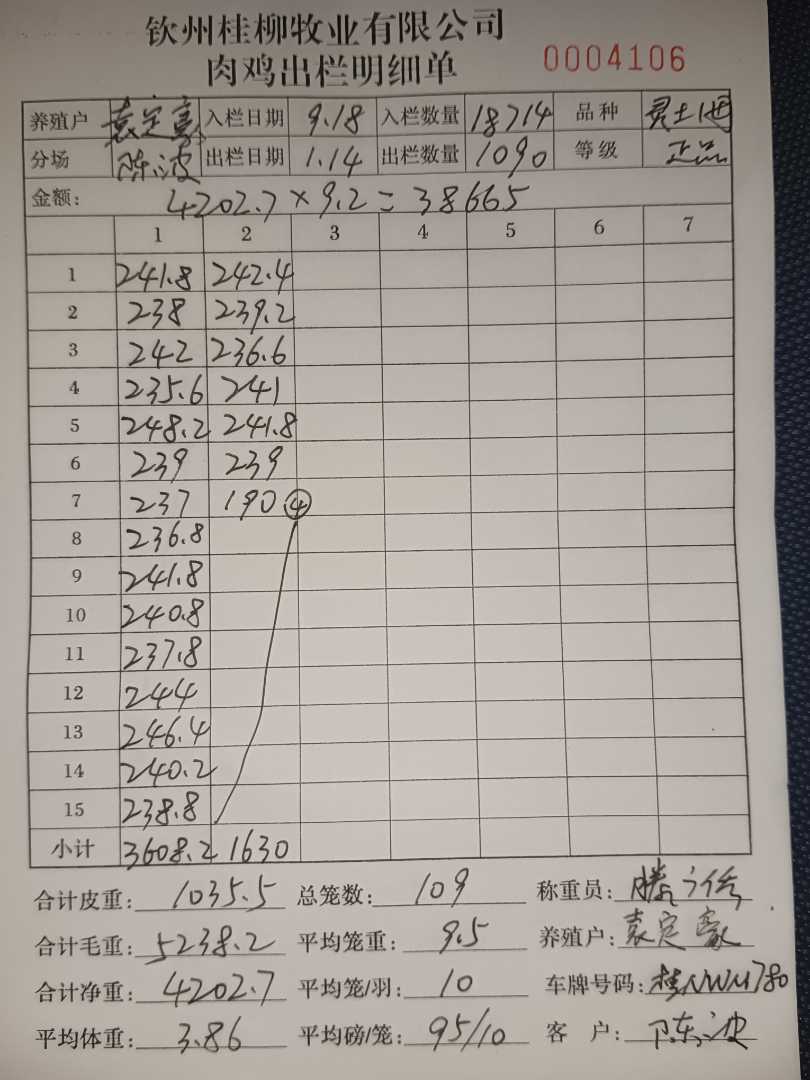 钦州桂柳牧业有限公司
肉鸡出栏明细单 0004106
养殖户 袁定豪 入栏日期 9.18 入栏数量 18714 品种 灵土
分场 陈波 出栏日期 1.14 出栏数量 1090 等级 正品
金额: 4202.7×9.2=38665
1 2 3 4 5 6 7
1 241.8 242.4
2 238 239.2
3 242 236.6
4 235.6 241
5 248.2 241.8
6 239 239
7 237 190 ④
8 236.8
9 241.8
10 240.8
11 237.8
12 244
13 246.4
14 240.2
15 238.8
小计 3608.2 1630
合计皮重: 1035.5 总笼数: 109 称重员:
合计毛重: 5238.2 平均笼重: 9.5 养殖户: 袁定豪
合计净重: 4202.7 平均笼/羽: 10 车牌号码: 桂NWM780
平均体重: 3.86 平均磅/笼: 95/10 客户: 陈波